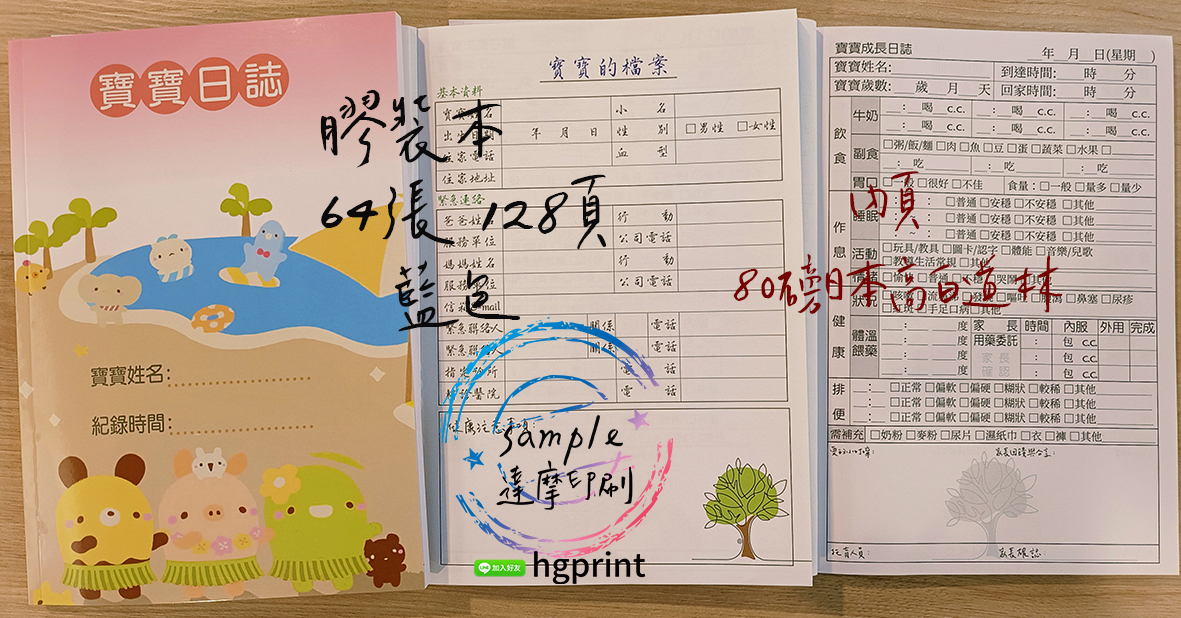 寶寶日誌
寶寶姓名:
紀錄時間:
寶寶的檔案
基本資料
小 名
年 月 日 性 別 □男性 □女性
住家電話 血 型
住家地址
緊急連絡
行 動
服務單位 公司電話
媽媽姓名 行 動
公司電話
關係 電話
關係 電話
電 話
電 話
健康注意事項:
膠裝本
64張 128頁
藍色
sample
達摩印刷
加入好友 hgprint
寶寶成長日誌 年 月 日(星期 )
寶寶姓名: 到達時間: 時 分
寶寶歲數: 歲 月 天 回家時間: 時 分
飲食
牛奶 __:__喝__c.c. __:__喝__c.c. __:__喝__c.c.
__:__喝__c.c. __:__喝__c.c. __:__喝__c.c.
副食 □粥/飯/麵 □肉 □魚 □豆 □蛋 □蔬菜 □水果 □
__:__吃 __:__吃 __:__吃
胃口 □一般 □很好 □不佳 食量: □一般 □量多 □量少
作息
睡眠 □普通 □安穩 □不安穩 □其他
□普通 □安穩 □不安穩 □其他
□普通 □安穩 □不安穩 □其他
活動 □玩具/教具 □圖卡/認字 □體能 □音樂/兒歌
□教導生活常規 □其他
內頁
80磅日本高白道林
健康
狀況 □鼻塞 □尿疹
□手足口病 □其他
體溫餵藥
度 家長用藥委託 時間 內服 外用 完成
度 : 包 c.c.
度 家長確認 : 包 c.c.
度 : 包 c.c.
排便
__:__ □正常 □偏軟 □偏硬 □糊狀 □較稀 □其他
__:__ □正常 □偏軟 □偏硬 □糊狀 □較稀 □其他
__:__ □正常 □偏軟 □偏硬 □糊狀 □較稀 □其他
需補充 □奶粉 □麥粉 □尿片 □濕紙巾 □衣 □褲 □其他
托育人員: 家長確認: